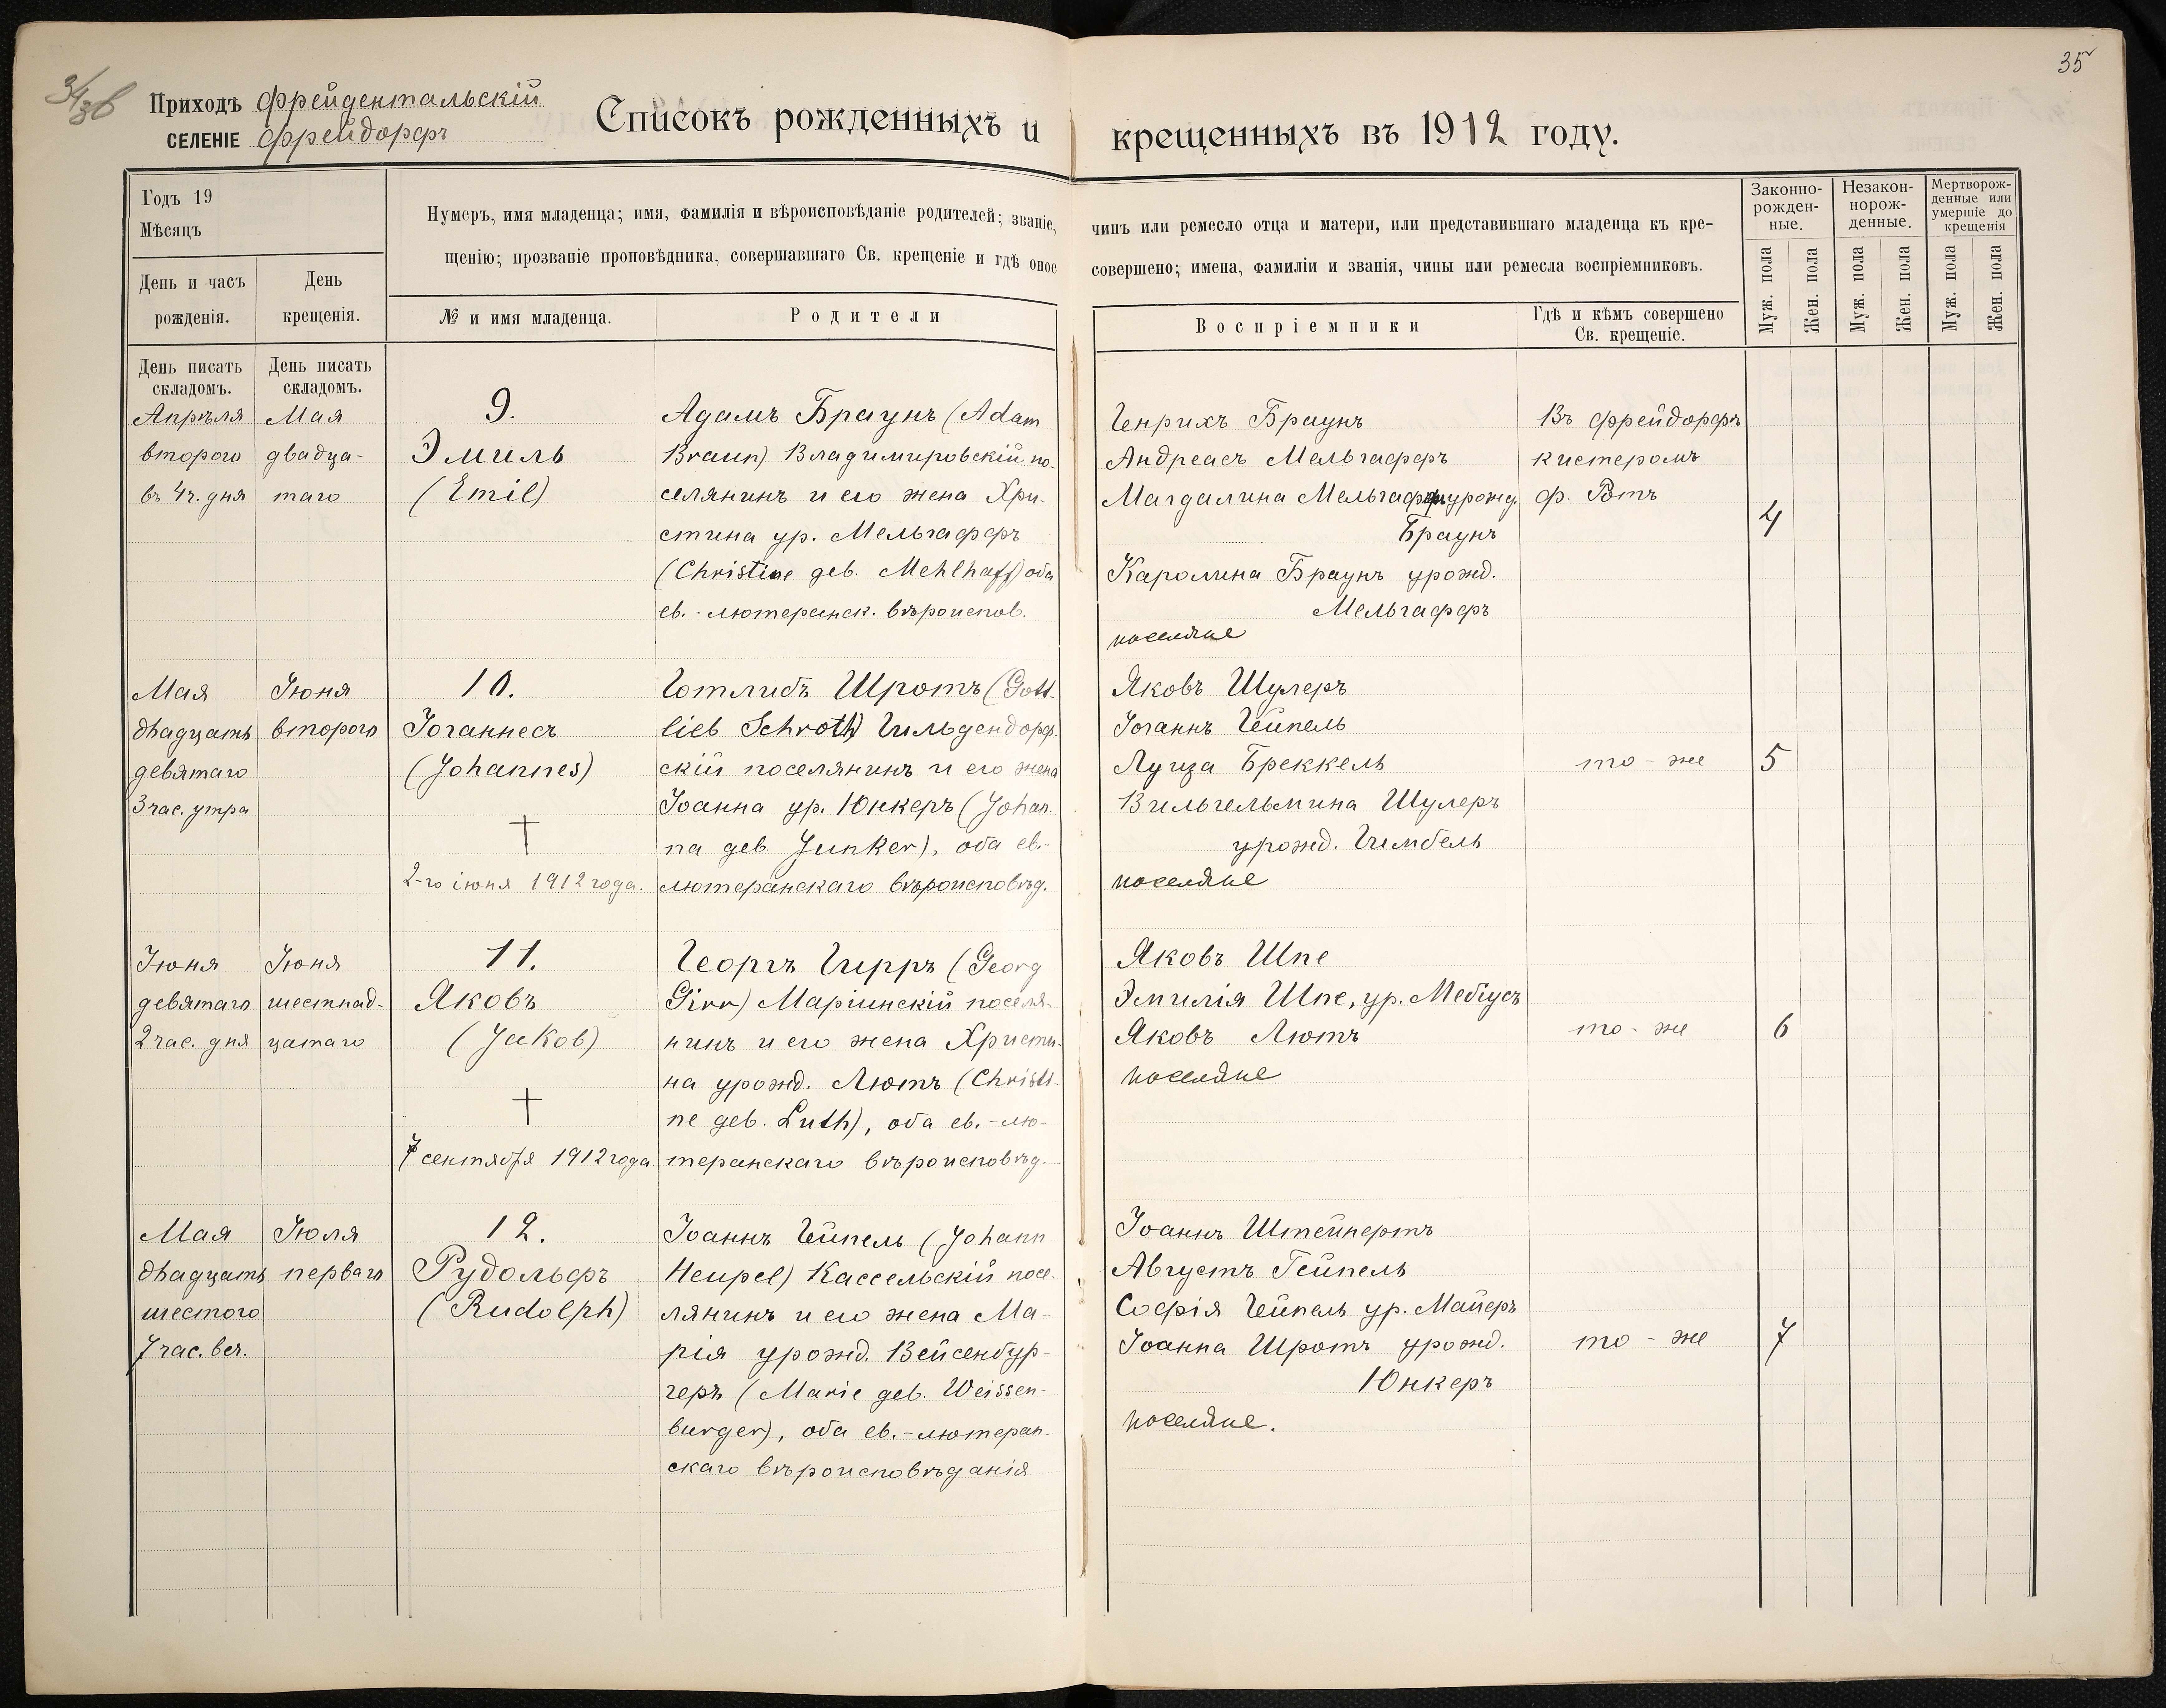 35
Приходъ Фрейдентальскій
СЕЛЕНІЕ Фрейдорфъ
Списокъ рожденныхъ и крещенныхъ въ 1912 году.
Годъ 19
Мѣсяцъ
День и часъ рожденія.
День крещенія.
Нумеръ, имя младенца; имя, фамилія и вѣроисповѣданіе родителей; званіе, чинъ или ремесло отца и матери, или представившаго младенца къ кре-
щенію; прозваніе проповѣдника, совершавшаго Св. крещеніе и гдѣ оное совершено; имена, фамиліи и званія, чины или ремесла воспріемниковъ.
№ и имя младенца.
Родители
Воспріемники
Гдѣ и кѣмъ совершено
Св. крещеніе.
Законно-
рожден-
ные.
Незакон-
норож-
денные.
Мертворож-
денные или
умершіе до
крещенія
Муж. пола
Жен. пола
Муж. пола
Жен. пола
Муж. пола
Жен. пола
День писать
складомъ.
День писать
складомъ.
Апрѣля
второго
въ 4ч. дня
Мая
двадца-
таго
9.
Эмиль
(Emil)
Адамъ Браунъ (Adam
Braun) Владимировскій по-
селянинъ и его жена Хри-
стина ур. Мельгаффъ
(Christine geb. Mehlhaff) оба
ев.-лютеранск. вѣроиспов.
Генрихъ Браунъ
Андреасъ Мельгаффъ
Магдалина Мельгаффъ урожд.
Браунъ
Каролина Браунъ урожд.
Мельгаффъ
поселяне
Въ Фрейдорфѣ
кистеромъ
Ф. Ротъ
4
Мая
двадцать
девятаго
3 час. утра
Іюня
второго
10.
Іоганнесъ
(Johannes)
†
2-го іюня 1912 года.
Готлибъ Шротъ (Gott-
lieb Schroth) Гильдендорф-
скій поселянинъ и его жена
Іоанна ур. Юнкеръ (Johan-
na geb. Junker), оба ев.-
лютеранскаго вѣроисповѣд.
Яковъ Шулеръ
Іоганнъ Гейпель
Луиза Бреккель
Вильгельмина Шулеръ
урожд. Гимбель
поселяне
то-же
5
Іюня
девятаго
2 час. дня
Іюня
шестнад-
цатаго
11.
Яковъ
(Jakob)
†
7 сентября 1912 года
Георгъ Гирръ (Georg
Girr) Маріинскій поселя-
нинъ и его жена Христи-
на урожд. Лютъ (Christi-
ne geb. Luth), оба ев.-лю-
теранскаго вѣроисповѣд.
Яковъ Шпе
Эмилія Шпе, ур. Мебіусъ
Яковъ Лютъ
поселяне
то-же
6
Мая
двадцать
шестого
7 час. веч.
Іюля
перваго
12.
Рудольфъ
(Rudolph)
Іоаннъ Гейпель (Johann
Heupel) Кассельскій посе-
лянинъ и его жена Ма-
рія урожд. Вейсенбур-
геръ (Marie geb. Weissen-
burger), оба ев.-лютеран-
скаго вѣроисповѣданія
Іоаннъ Штейнертъ
Августъ Гейпель
Софія Гейпель ур. Майеръ
Іоанна Шротъ урожд.
Юнкеръ
поселяне.
то-же
7